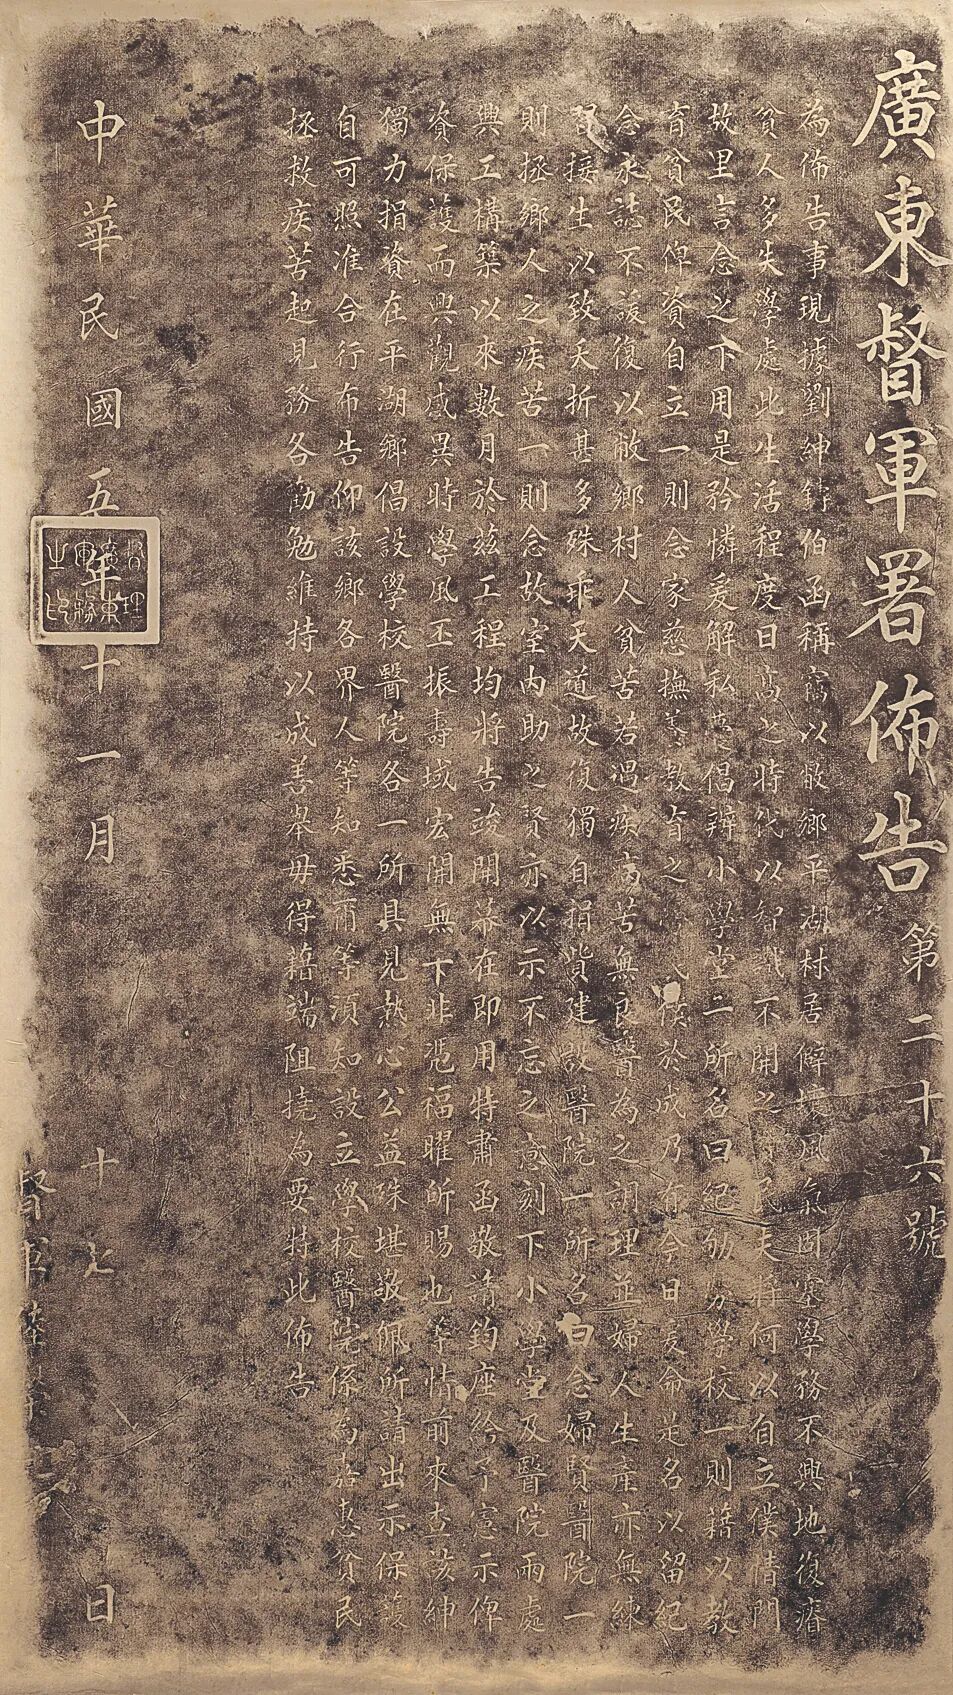 廣東督軍署佈告第二十六號
為佈告事現據劉紳鑄伯函稱竊以敝鄉平湖村居僻壤風氣固塞學務不興地復瘠
貧人多失學處此生活程度日高之時代以智識不開之民夫將何以自立僕情
故里言念之下用是矜憐爰解私囊倡辦小學堂二所名曰紀劬勞學校一則藉以教
育貧民俾資自立一則念家慈撫養教育之僕於成乃有今日爰命是名以留紀
念永誌不諼復以敝鄉村人貧苦若遇疾病苦無良醫為之調理並婦人生產亦無練
習接生以致夭折甚多殊乖天道故復獨自捐貲建設醫院一所名曰念婦賢醫院一
則拯鄉人之疾苦一則念故室內助之賢亦以示不忘之意刻下小學堂及醫院兩處
興工構築以來數月於茲工程均將告竣開幕在即用特肅函敬請鈞座給予憲示俾
資保護而興觀感異時學風丕振壽域宏開無不非憑福曜所賜也等情前來查該紳
獨力捐資在平湖鄉倡設學校醫院各一所具見熱心公益殊堪敬佩所請出示保護
自可照准合行布告仰該鄉各界人等知悉爾等須知設立學校醫院係為嘉惠貧民
拯救疾苦起見務各勸勉維持以成善舉毋得藉端阻撓為要特此佈告
中華民國五年十一月十七日
督軍陸